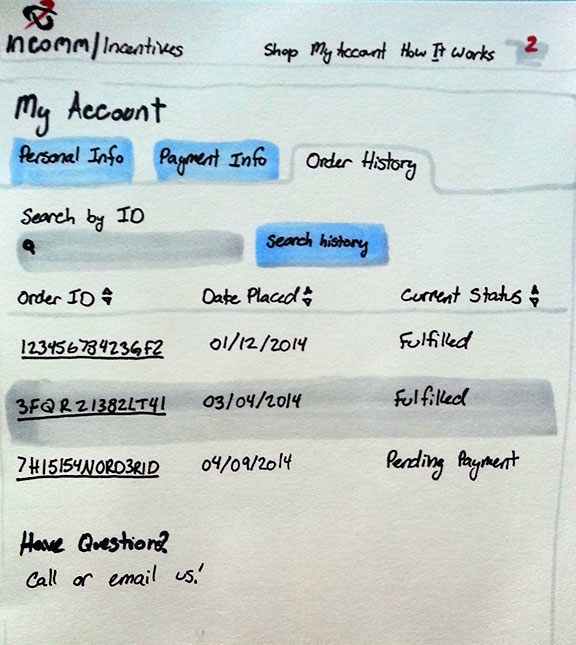 InComm/Incentives
Shop My Account How It Works 2
My Account
Personal Info Payment Info Order History
Search by ID
Search history
Order ID Date Placed Current Status
12345678423GF2 01/12/2014 Fulfilled
3FQR21382LT41 03/04/2014 Fulfilled
7H15154NORD3R1D 04/09/2014 Pending Payment
Have Question?
Call or email us!